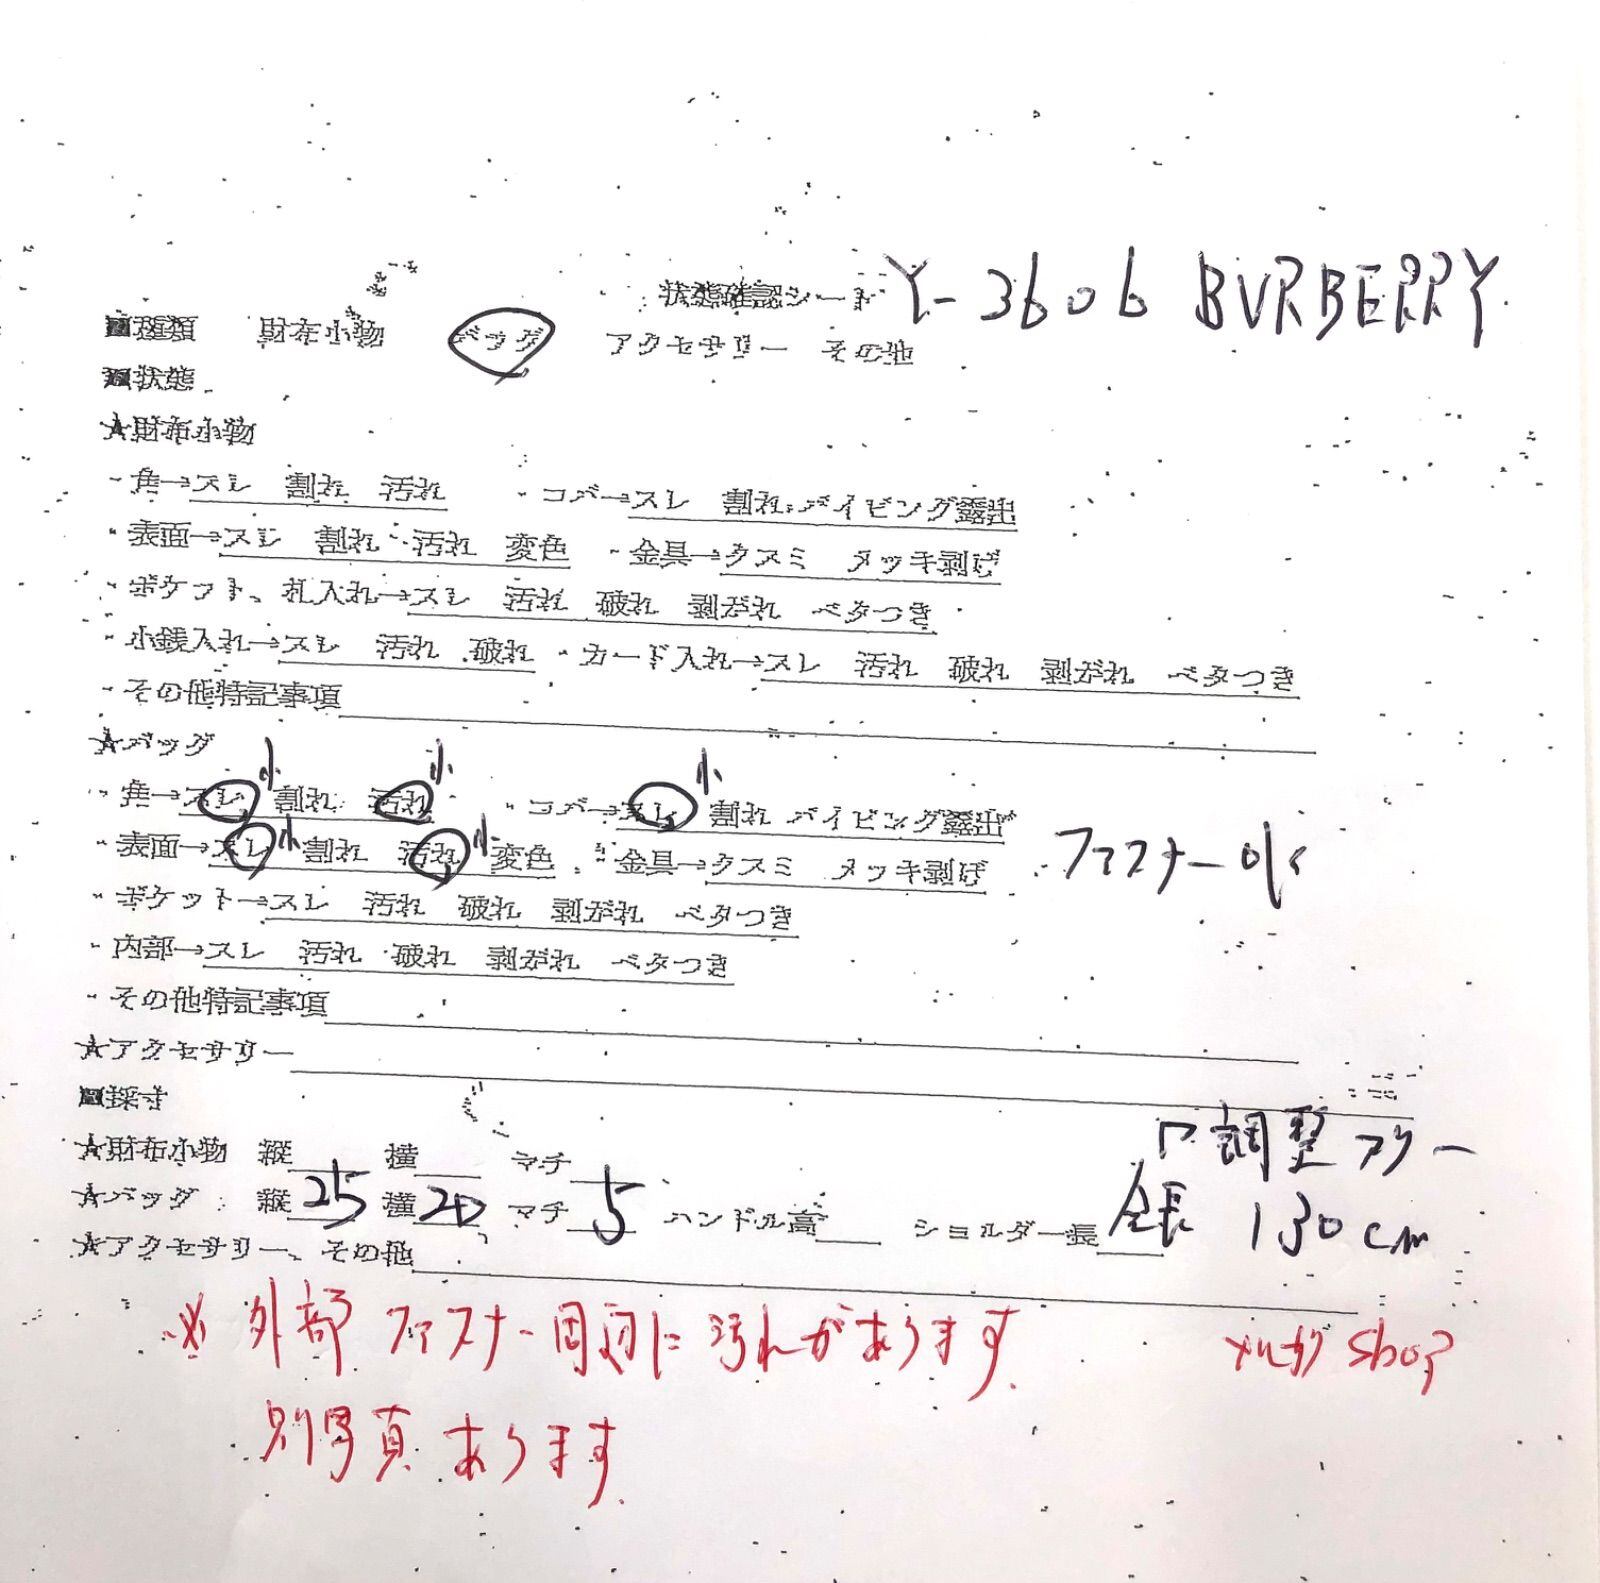 状態確認シート Y-3606 BURBERRY
■種類 財布小物 バッグ アクセサリー その他
■状態
★財布小物
・角→スレ 割れ 汚れ ・コバ→スレ 割れ パイピング露出
・表面→スレ 割れ 汚れ 変色 ・金具→クスミ メッキ剥げ
・ポケット、札入れ→スレ 汚れ 破れ 剥がれ ベタつき
・小銭入れ→スレ 汚れ 破れ ・カード入れ→スレ 汚れ 破れ 剥がれ ベタつき
・その他特記事項
★バッグ
・角→スレ 小 割れ 汚れ 小 ・コバ→スレ 小 割れ パイピング露出
・表面→スレ 小 割れ 汚れ 小 変色 ・金具→クスミ メッキ剥げ ・ファスナーOK
・ポケット→スレ 汚れ 破れ 剥がれ ベタつき
・内部→スレ 汚れ 破れ 剥がれ ベタつき
・その他特記事項
★アクセサリー
■採寸
★財布小物 縦 横 マチ
調整フリー
★バッグ 縦25 横20 マチ5 ハンドル高 ショルダー長 全長 130cm
★アクセサリー、その他
※ 外部 ファスナー周辺に汚れがあります
Shop
別写真あります